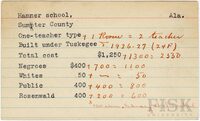 Hamner school, Ala.
Sumpter County
One-teacher type + 1 Room = 2 teacher
Built under Tuskegee = 1926-27 (24F)
Total cost $1,250 +1300 = 2550
Negroes $400 +700 = 1100
Whites 50 + — = 50
Public 400 +400 = 800
Rosenwald 400 +200 = 600
FISK